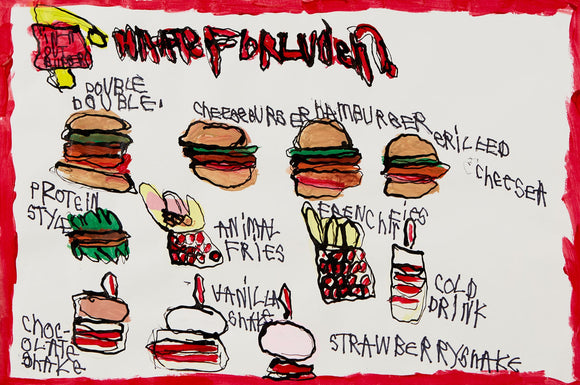 WHATS FOR LUNCH
DOUBLE
DOUBLE.
CHEESEBURGER
HAMBURGER
GRILLED
CHEESEA
PROTEIN
STYLE
ANIMAL
FRIES
FRENCH FRIES
COLD
DRINK
CHOC-
OLATE
SHAKE
VANILLA
SHAKE
STRAWBERRY SHAKE